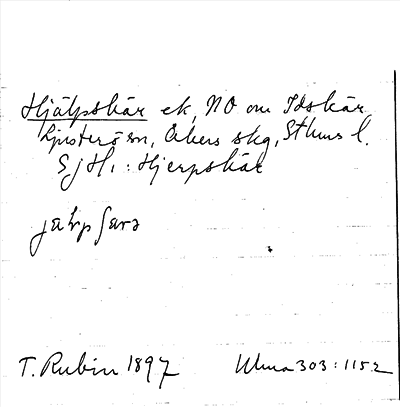 Hjälpskär ek, NO om Idskär
Ljusterö sn, Åkers skg, Sthms l.
Sj H, : Hjerpskär
T. Rubin 1897 Ulma 303:115.2